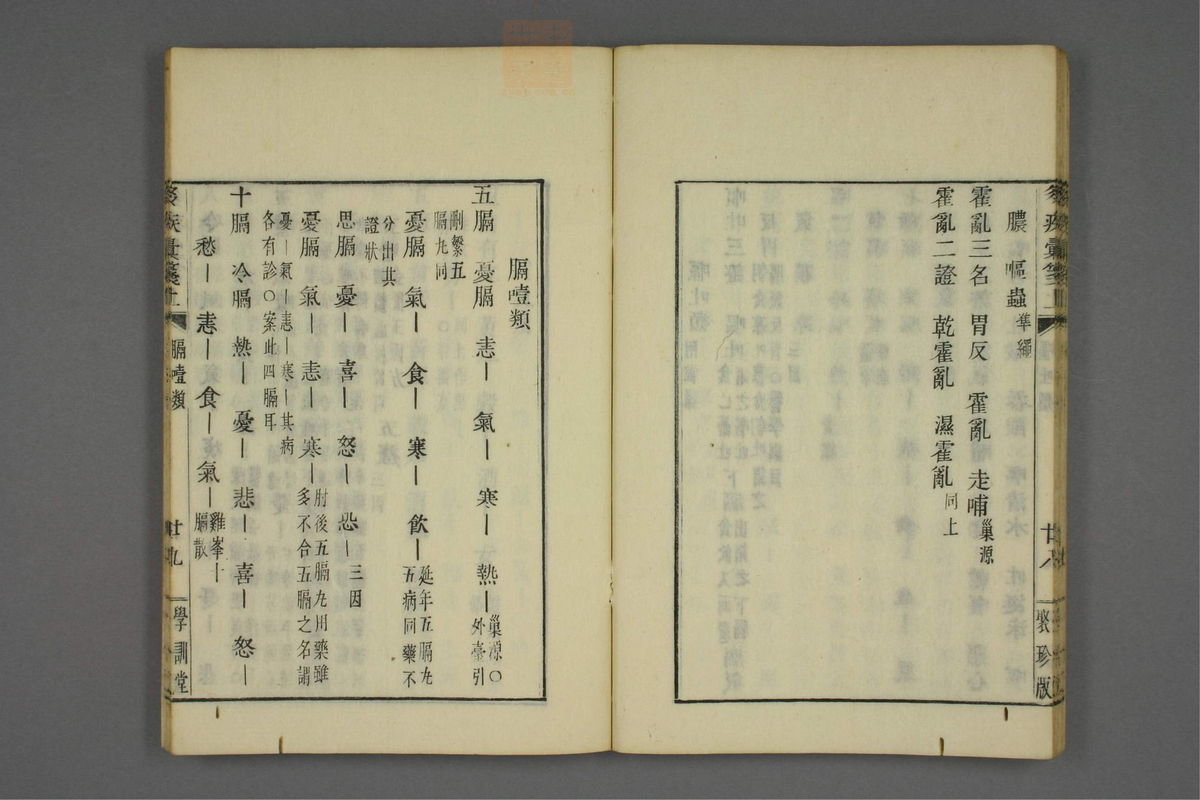 膿嘔蟲準繩
霍亂三名　胃反　霍亂　走哺巢源
霍亂二證　乾霍亂　濕霍亂同上
廿八
聚珍版
膈噎類
五膈　憂膈　恚—　氣—　寒—　熱—巢源〇外臺引
刪繁五膈丸同
憂膈　氣—　食—　寒—　飲—延年五膈丸五病同藥不
分出其證狀
思膈　憂—　喜—　怒—　恐—三因
憂膈　氣—　恚—　寒—肘後五膈丸用藥雖多不合五膈之名謂
憂—氣—恚—寒—其病各有診〇案此四膈耳
十膈　冷膈　熱—　憂—　悲—　喜—　怒—
愁—　恚—　食—　氣—雞峯十膈散
膈噎類
廿九
學訓堂